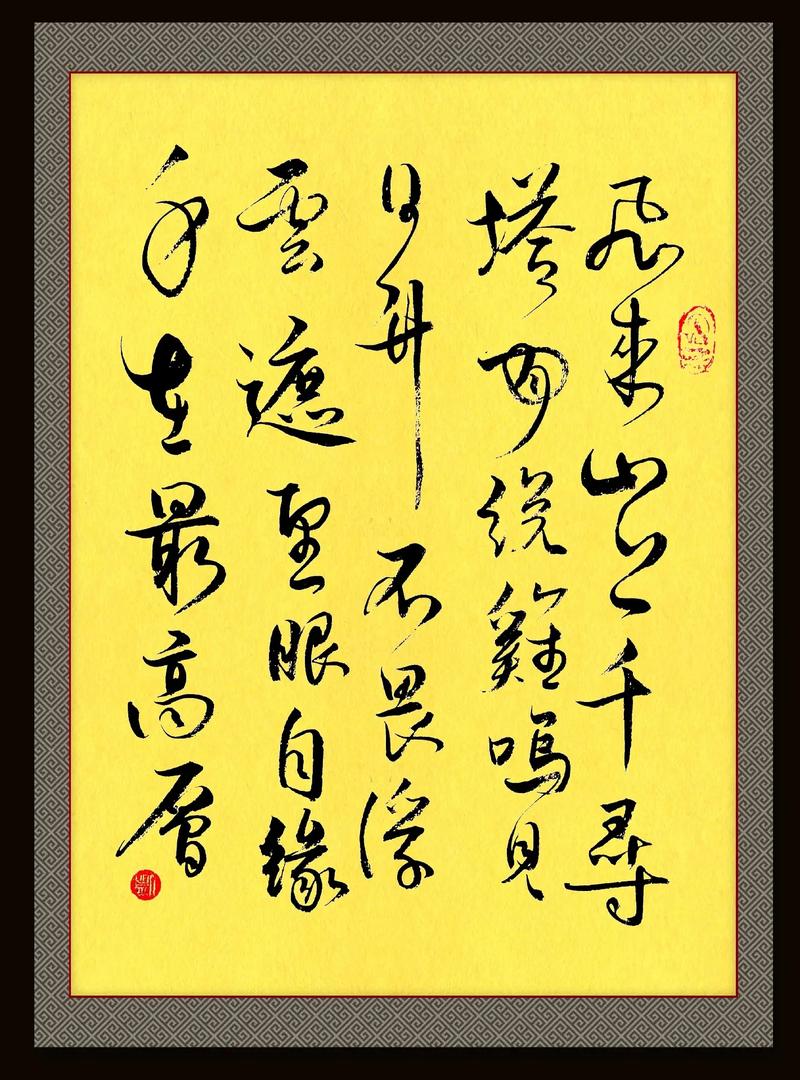 飛來山上千尋
塔聞説雞鳴見
日升不畏浮
雲遮望眼自緣
身在最高層